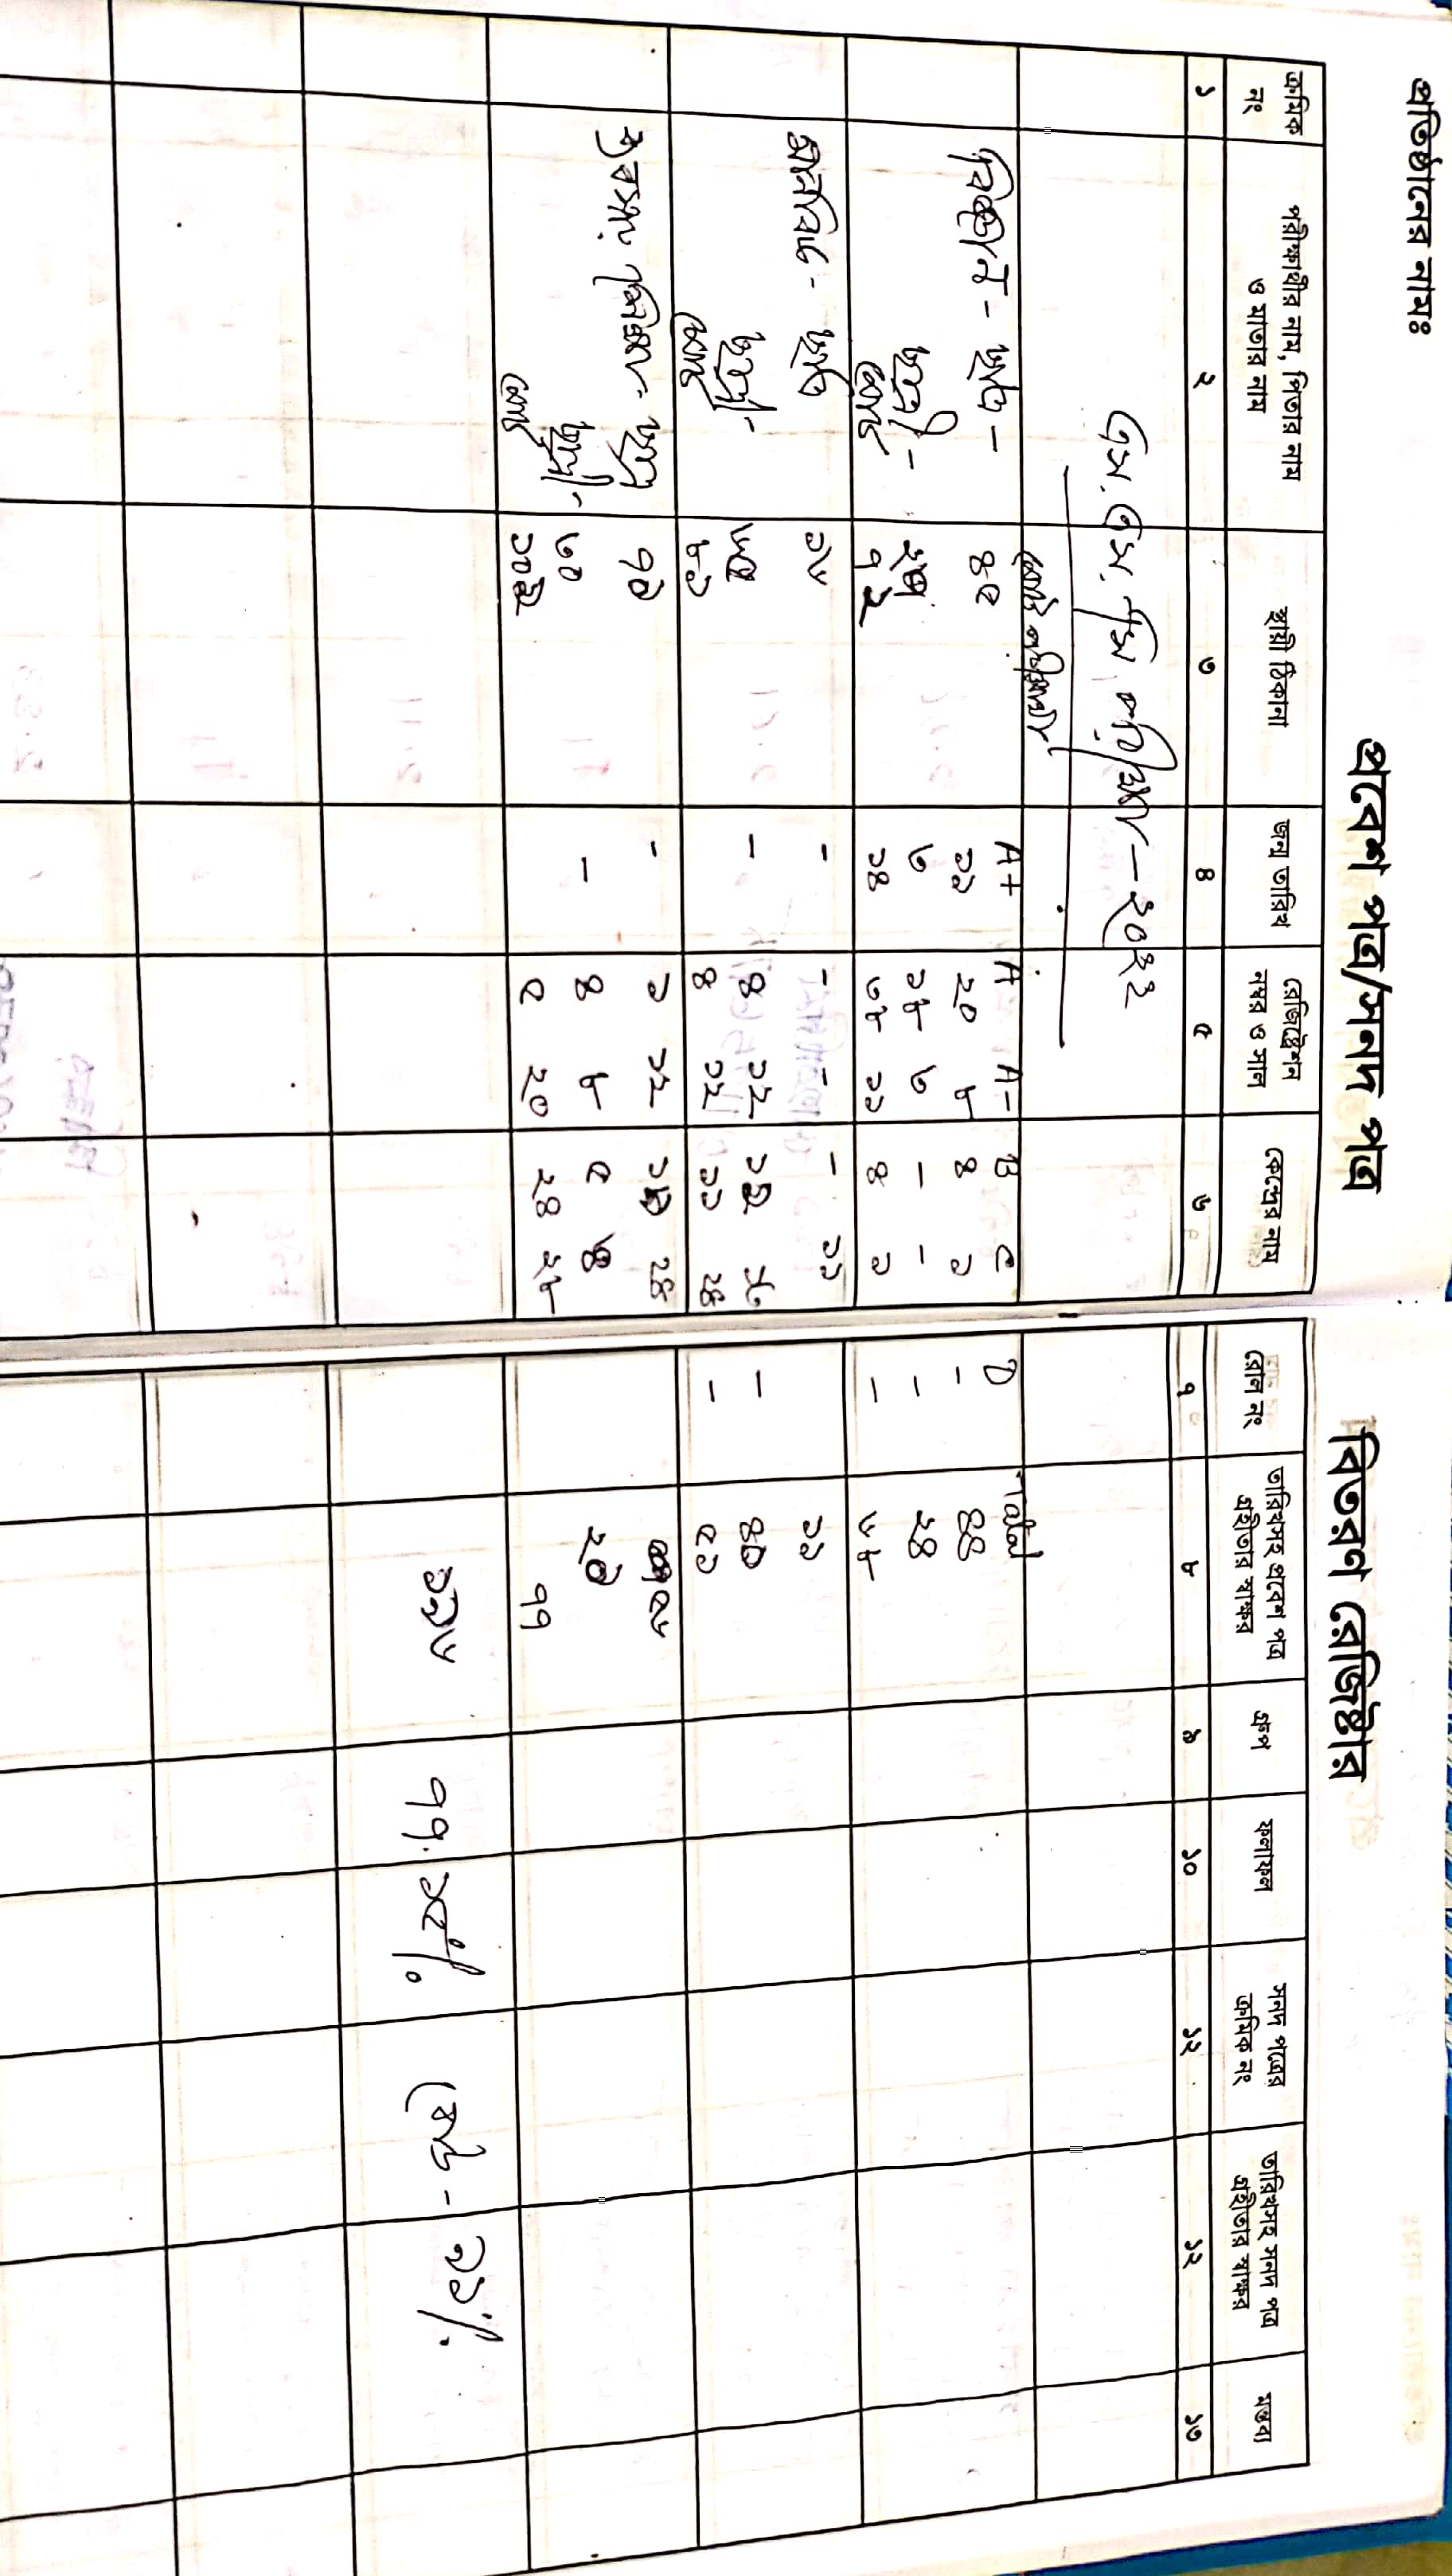 প্রতিষ্ঠানের নামঃ
প্রবেশ পত্র/সনদ পত্র বিতরণ রেজিষ্টার
ক্রমিক নং
পরীক্ষার্থীর নাম, পিতার নাম ও মাতার নাম
স্থায়ী ঠিকানা
জন্ম তারিখ
রেজিষ্ট্রেশন নম্বর ও সাল
কেন্দ্রের নাম
রোল নং
তারিখসহ প্রবেশ পত্র গ্রহীতার স্বাক্ষর
গ্রুপ
ফলাফল
সনদ পত্রের ক্রমিক নং
তারিখসহ সনদ পত্র গ্রহীতার স্বাক্ষর
মন্তব্য
১ ২ ৩ ৪ ৫ ৬ ৭ ৮ ৯ ১০ ১২ ১২ ১৩
এস. এস. সি পরীক্ষা - ২০২২
মোট পরীক্ষার্থী A+ A A- B C D Total
বিজ্ঞান - ছাত্র - ৪৫ ১১ ২০ ৮ ৪ ১ - ৪৪
ছাত্রী - ৬ ১৮ ৬ - - - ২৪
মোট ৭২ ১৪ ৩৮ ১১ ৪ ১ - ৬৮
মানবিক - ছাত্র ১৬ - - - - ১১ ১১
ছাত্রী - - ৪ ১২ - ৪০
মোট ৮১ ৪ ১২ ১১ ২৪ - ৫১
ব্যবসায় শিক্ষা - ছাত্র ৭৯ - ১ ১২ ২৪ ৫৬
ছাত্রী - ৩০ - ৪ ৮ ৫
মোট ৫ ২০ ২৪ ২৮ ৭৭
১৯৬ ৭৭. % মোট - ৯১%